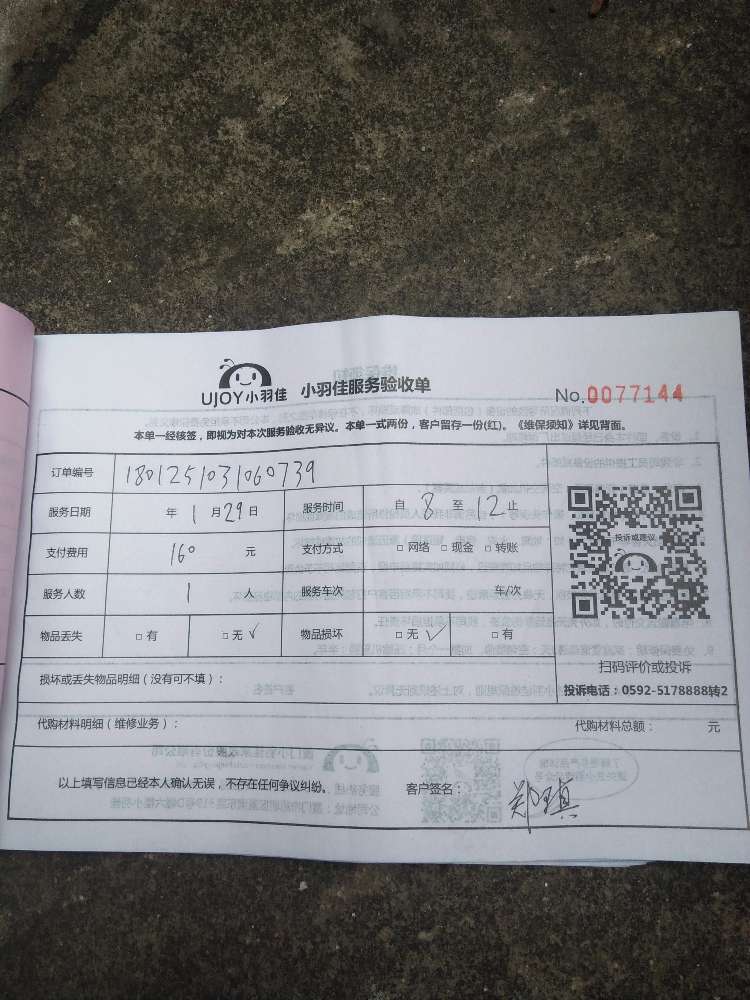 UJOY小羽佳 小羽佳服务验收单 No.0077144
本单一经核签，即视为对本次服务验收无异议。本单一式两份，客户留存一份(红)。《维保须知》详见背面。
订单编号 1801251031060739
服务日期 年 1 月 29 日 服务时间 自 8 至 12 止
支付费用 160 元 支付方式 □ 网络 □ 现金 □ 转账
投诉或建议
服务人数 1 人 服务车次 车/次
物品丢失 □ 有 □ 无 ✓ 物品损坏 □ 无 ✓ □ 有
扫码评价或投诉
损坏或丢失物品明细（没有可不填）：
投诉电话：0592-5178888转2
代购材料明细（维修业务）： 代购材料总额： 元
以上填写信息已经本人确认无误，不存在任何争议纠纷。 客户签名：